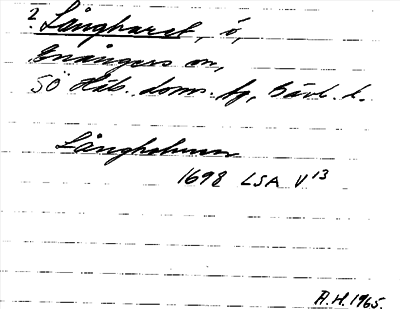 2. Långharet, ö,
Enångers sn,
SÖ Häls. doms. fg, Gävl. l.
Långholmen
1698 LSA V 13
A.H. 1965.